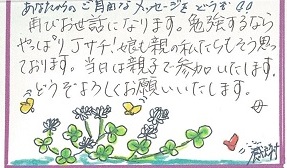 あなたからのご自由なメッセージをどうぞ
再びお世話になります。勉強するなら
やっぱりJサチ!娘も親の私たちもそう思っ
ております。当日は親子で参加いたします。
どうぞよろしくお願いいたします。